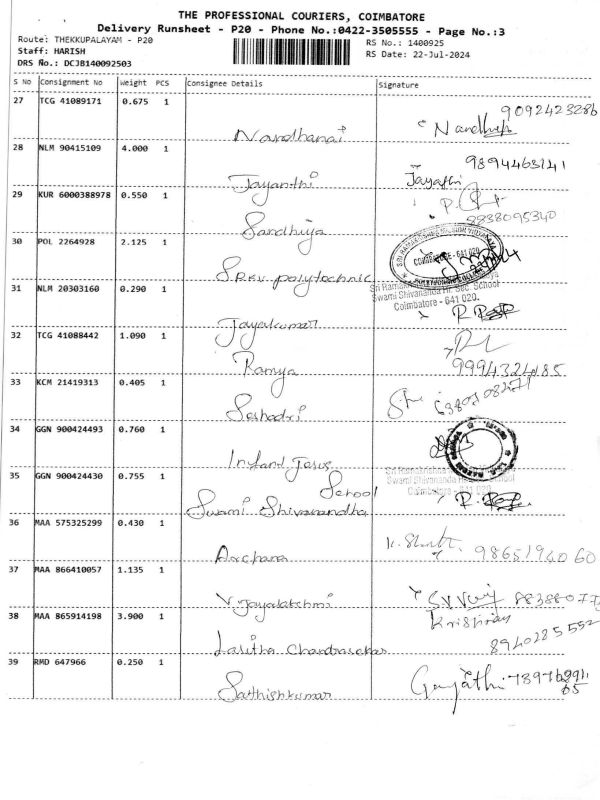 THE PROFESSIONAL COURIERS, COIMBATORE
Delivery Runsheet - P20 - Phone No.:0422-3505555 - Page No.:3
Route: THEKKUPALAYAM - P20
RS No.: 1400925
Staff: HARISH
RS Date: 22-Jul-2024
DRS No.: DCJB140092503
S No Consignment No Weight PCS Consignee Details Signature
27 TCG 41089171 0.675 1
9092423286
Nandhanai
28 NLM 90415109 4.000 1
9894463141
Jayanthi Jayathi
29 KUR 6000388978 0.550 1
Sandhiya 8838095340
30 POL 2264928 2.125 1
COIMBATORE - 641 020
S.R.K.V. polytechnic
31 NLM 20303160 0.290 1
Swami Shivananda Hr. Sec. School
Coimbatore - 641 020.
Jayakumar
32 TCG 41088442 1.090 1
Ramya 9994324185
33 KCM 21419313 0.405 1
Seshadri
34 GGN 900424493 0.760 1
Infant Jesus
School
35 GGN 900424430 0.755 1
Swami Shivanandha
36 MAA 575325299 0.430 1
Archana 9865194060
37 MAA 866410057 1.135 1
Vijayalakshmi
38 MAA 865914198 3.900 1
8940285552
Lalitha Chandrasekar
39 RMD 647966 0.250 1
Sathishkumar Gayathi